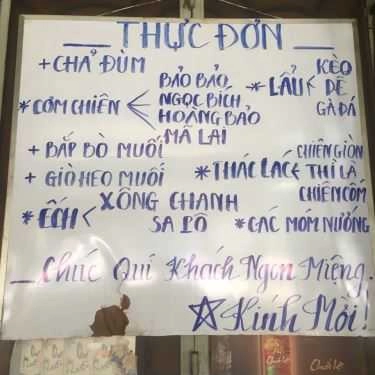 THỰC ĐƠN
+ CHẢ ĐÙM
* CƠM CHIÊN
BẢO BẢO
NGỌC BÍCH
HOÀNG BẢO
MÃ LAI
* LẨU
KÈO
DÊ
GÀ ĐÁ
+ BẮP BÒ MUỐI
+ GIÒ HEO MUỐI
* THÁC LÁC
CHIÊN GIÒN
THÌ LÀ
CHIÊN CỐM
* ẾCH
XÔNG CHANH
SA LÔ
* CÁC MÓM NƯỚNG
Chúc Quí Khách Ngon Miệng.
Kính Mời!